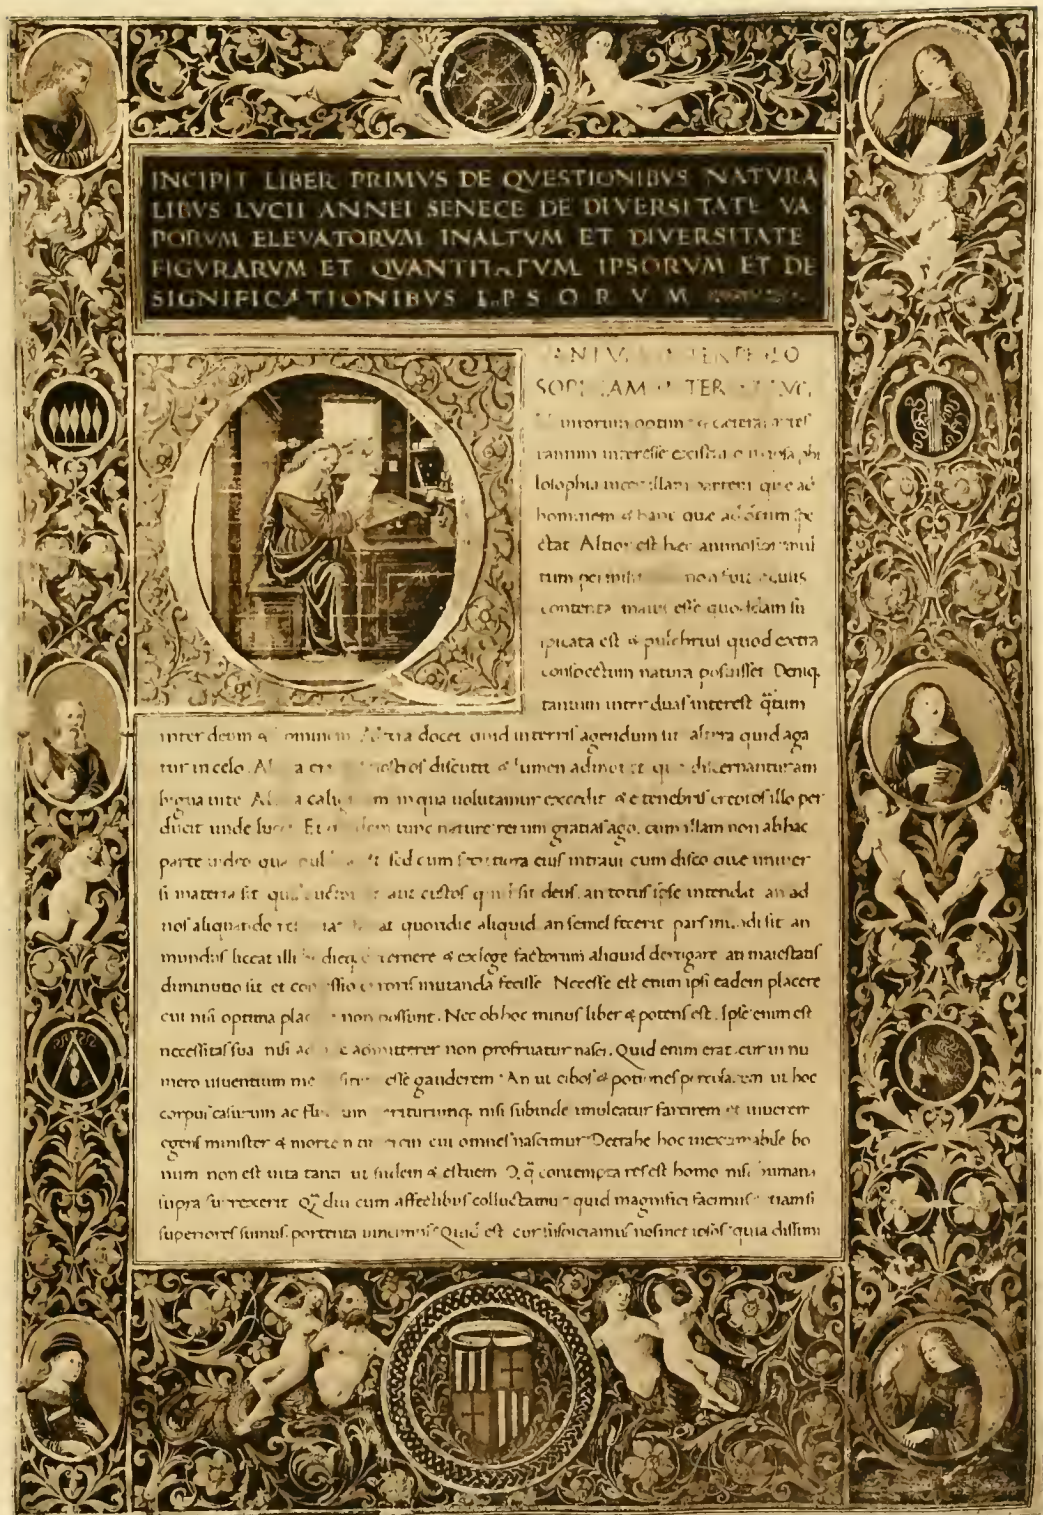 INCIPIT LIBER PRIMVS DE QVESTIONIBVS NATVRA
LIBVS LVCII ANNEI SENECE DE DIVERSITATE VA
PORVM ELEVATORVM INALTVM ET DIVERSITATE
FIGVRARVM ET QVANTITATVM IPSORVM ET DE
SIGNIFICATIONIBVS IPSORVM
uirorum optime ceteras artes
tantum interesse existimo in ipsa phi
losophia inter illam partem que ad
hominem & hanc que ad
ctat Altior est hec animosior mul
tum permisit non fuit oculis
contenta maius esse quoddam su
spicata est & pulchrius quod extra
conspectum natura posuisset Deniq
tantum inter duas interest q̃tum
inter deum & docet quid interris agendum sit altera quid aga
tur in celo discutit & lumen admouet que discernantur am
bigua uite in qua uolutamur excedit & e tenebris ereptos illo per
ducit unde Et tunc nature rerum gratias ago, cum illam non ab hac
parte uideo que sed cum secretiora eius intraui cum disco que uniuer
si materia sit aut custos quid sit deus, an totus ipse intendat an ad
nos aliquando quotidie aliquid an semel fecerit pars mundi sit an
mundus liceat illi decernere & exlege factorum aliquid derogare an maiestatis
diminutio sit et confessio erroris mutanda fecisse Necesse est enim ipsi eadem placere
cui nisi optima non possunt. Nec ob hoc minus liber & potens est. Ipse enim est
necessitas sua nisi admitterer non profruatur nasci. Quid enim erat cur in nu
mero uiuentium me esse gauderem An ut cibos & potiones ut hoc
corpus casurum ac nisi subinde impleatur farcirem et uiuerem
egens minister & mortem cui omnes nascimur Detrahe hoc inextimabile bo
num non est uita tanti ut sudem & estuem O q̃ contempta res est homo nisi humana
supra surrexerit diu cum affectibus colluctamur quid magnifici facimus etiamsi
superiores sumus portenta uincimus Quid est cur suspiciamus nosmet ipsos quia dissimi